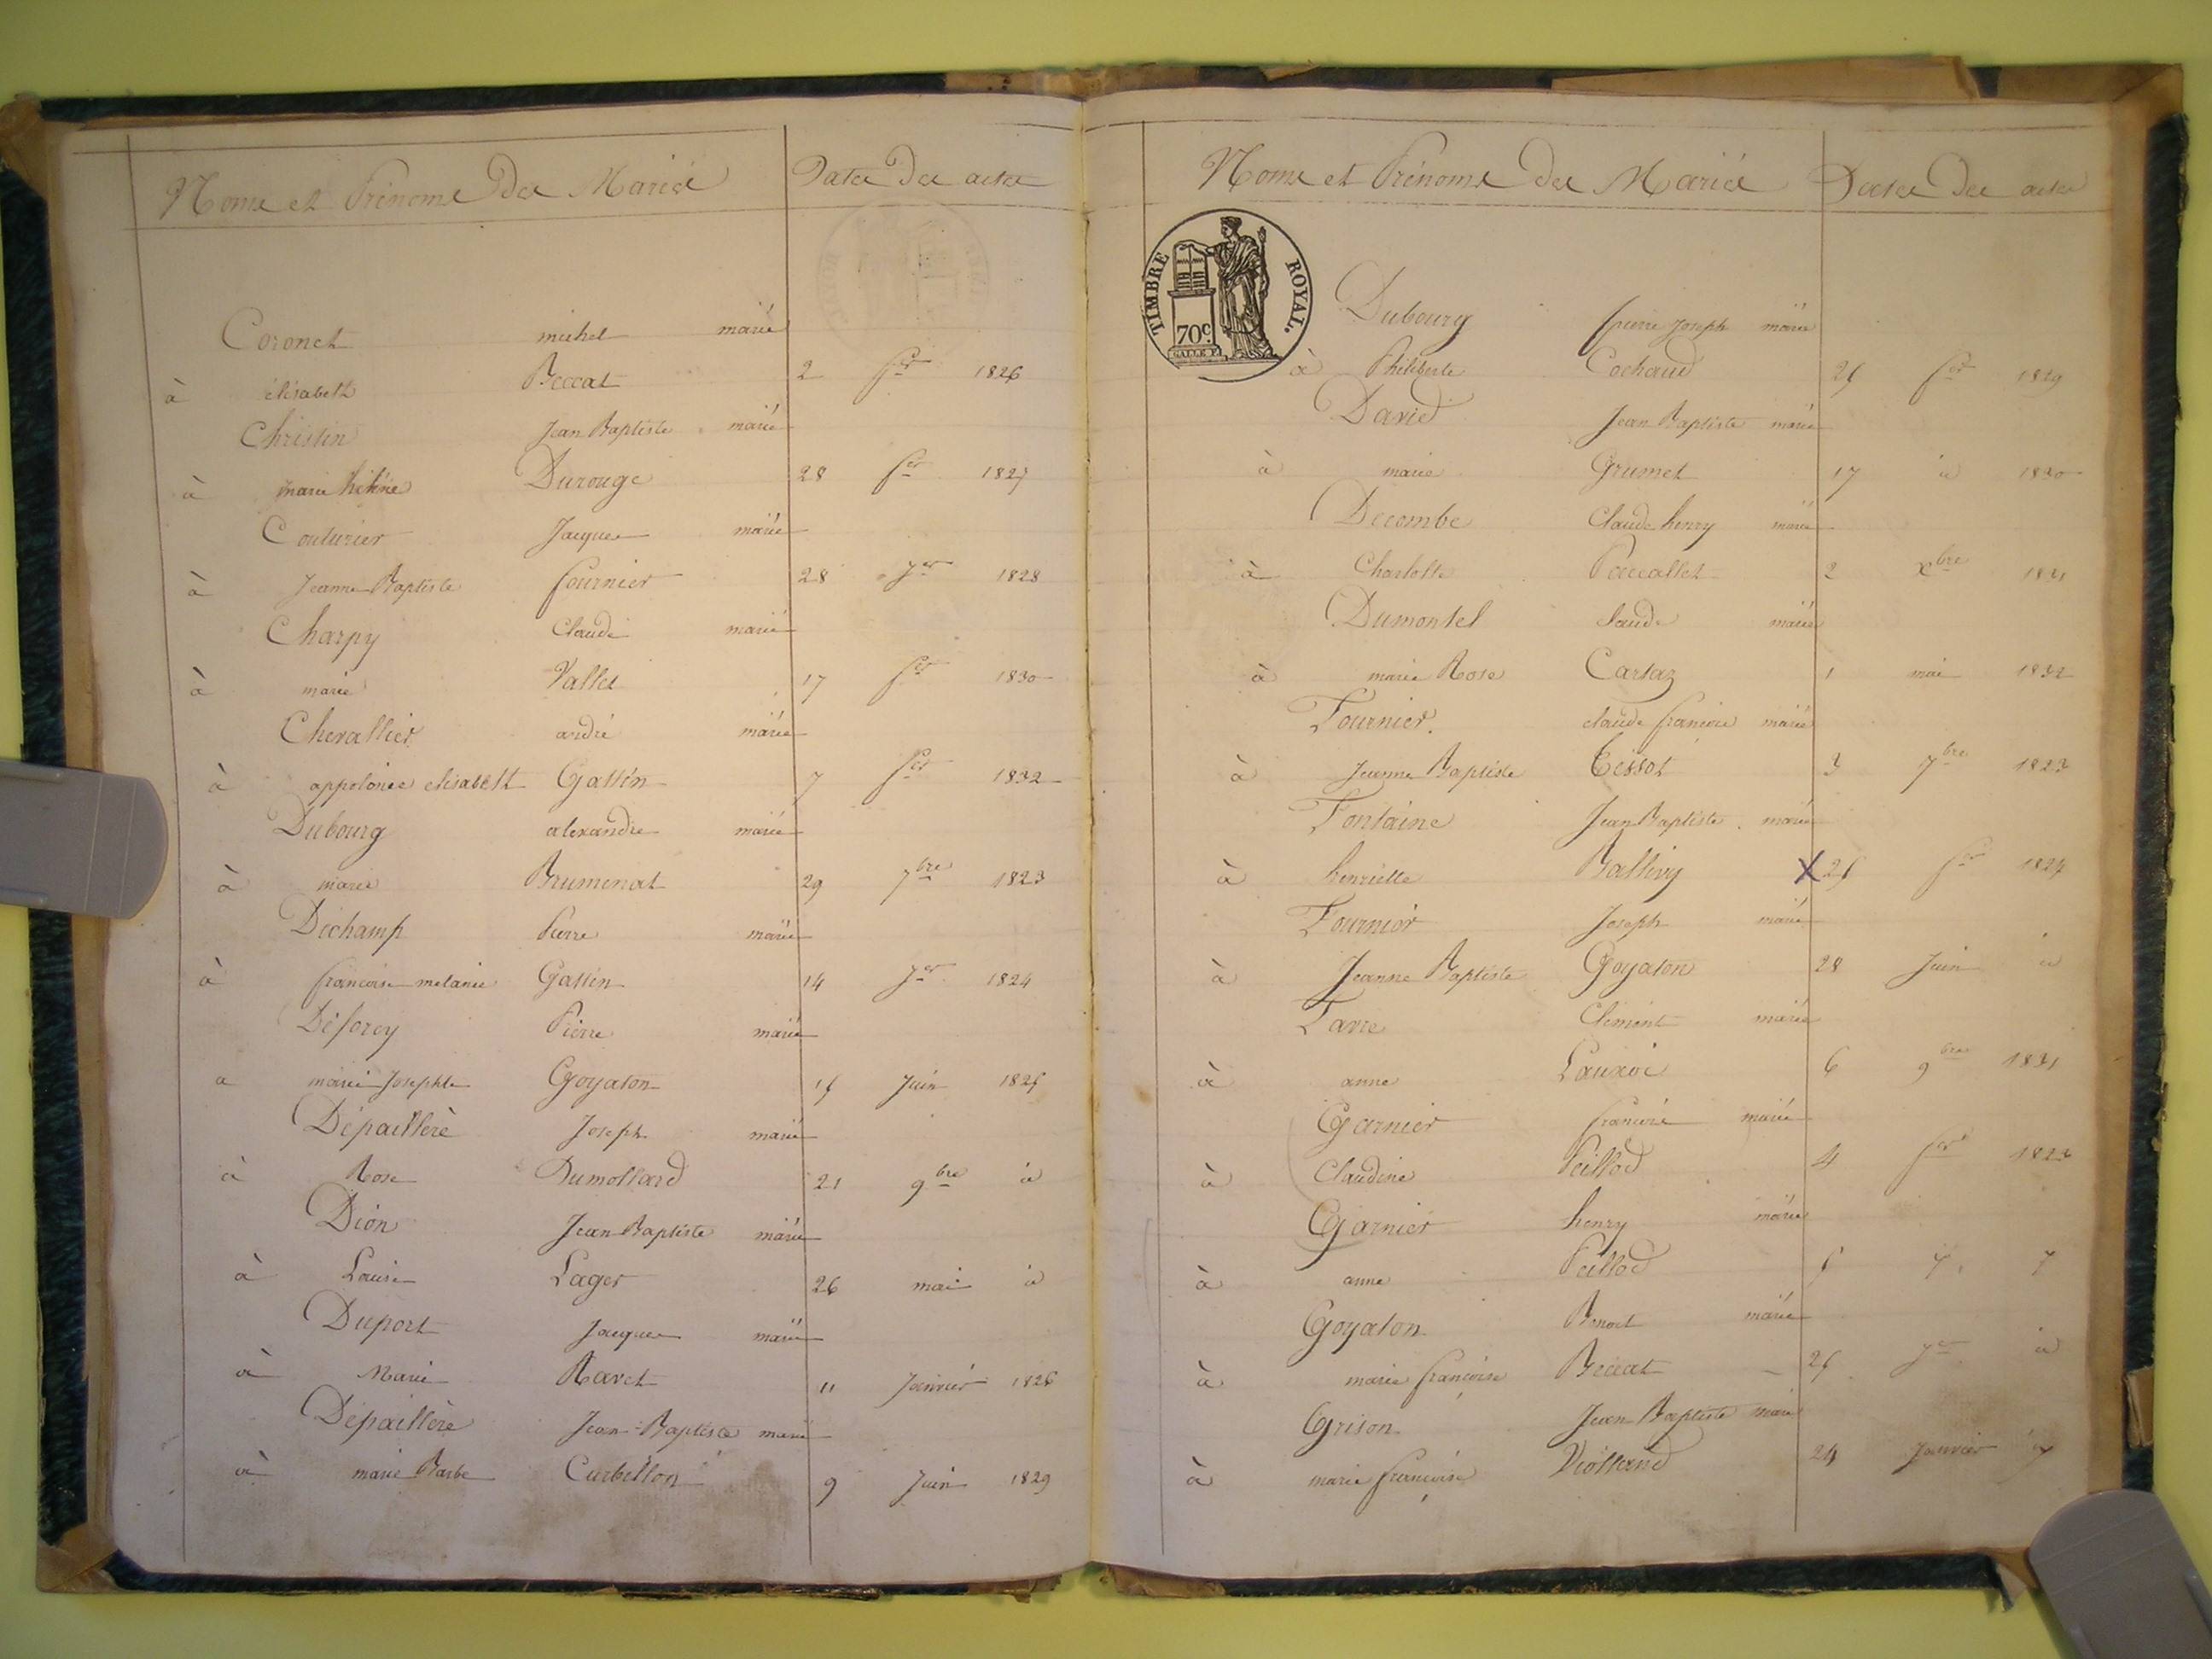 Noms et Prénoms des Mariés Dates des actes
Coronet michel marié
à élisabeth Beccat 2 fer 1826
Christin Jean Baptiste marié
à marie hélène Durouge 28 fer 1827
Couturier Jacques marié
à Jeanne Baptiste fournier 28 Jer 1828
Charpy Claude marié
à marie Vallet 17 fer 1830
Chevallier andré marié
à appolonie elisabeth Gallin 7 fer 1832
Dubourg alexandre marié
à marie Bruminat 29 7bre 1823
Dechamp Pierre marié
à francoise melanie Gallin 14 Jer 1824
Déforey Pierre marié
a marie Josephte Goyaton 15 Juin 1825
Dépaillère Joseph marié
à Rose Dumollard 21 9bre id
Dion Jean Baptiste marié
à Louise Lager 26 mai id
Duport Jacques marié
à Marie Ravet 11 Janvier 1826
Dépaillère Jean-Baptiste marié
à marie Barbe Curbillon 9 Juin 1829
Noms et Prénoms des Mariés Dates des actes
TIMBRE ROYAL.
70c.
GALLE F.
Dubourg pierre Joseph marié
à Philiberte Cochaud 25 fer 1829
David Jean Baptiste marié
à marie Grumet 17 id 1830
Decombe Claude henry marié
à Charlotte Peccallet 2 xbre 1831
Dumontel claude marié
à marie Rose Cartaz 1 mai 1832
Fournier claude francois marié
à Jeanne Baptiste Tissot 3 7bre 1823
Fontaine Jean Baptiste marié
à henriette Ballivy X 25 fer 1824
Fournier Joseph marié
à Jeanne Baptiste Goyaton 28 Juin id
Favre Clément marié
à anne 6 9bre 1831
Garnier francois marié
à Claudine Peillod 4 fer 1823
Garnier henry marié
à anne Peillod 5
Goyaton Benoit marié
à marie francoise Beccat 25 Jer id
Grison Jean Baptiste marié
à marie francoise Violland 24 Janvier